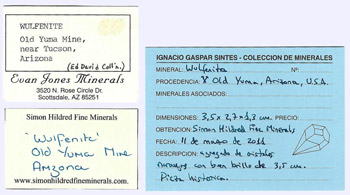 WULFENITE
Old Yuma Mine,
near Tucson,
Arizona
(Ed David Coll'n.)
Evan Jones Minerals
3520 N. Rose Circle Dr.
Scottsdale, AZ 85251
Simon Hildred Fine Minerals
"Wulfenite"
Old Yuma Mine
Arizona
www.simonhildredfineminerals.com
IGNACIO GASPAR SINTES - COLECCION DE MINERALES
MINERAL: Wulfenita Nº:
PROCEDENCIA: Old Yuma, Arizona, U.S.A.
MINERALES ASOCIADOS:
DIMENSIONES: 3,5 x 2,7 x 1,3 cm. PRECIO:
OBTENCIÓN: Simon Hildred Fine Minerals
FECHA: 11 de marzo de 2011
DESCRIPCIÓN: agregado de cristales
naranjas con bien brillo de 3,5 cm.
Pieza historica.